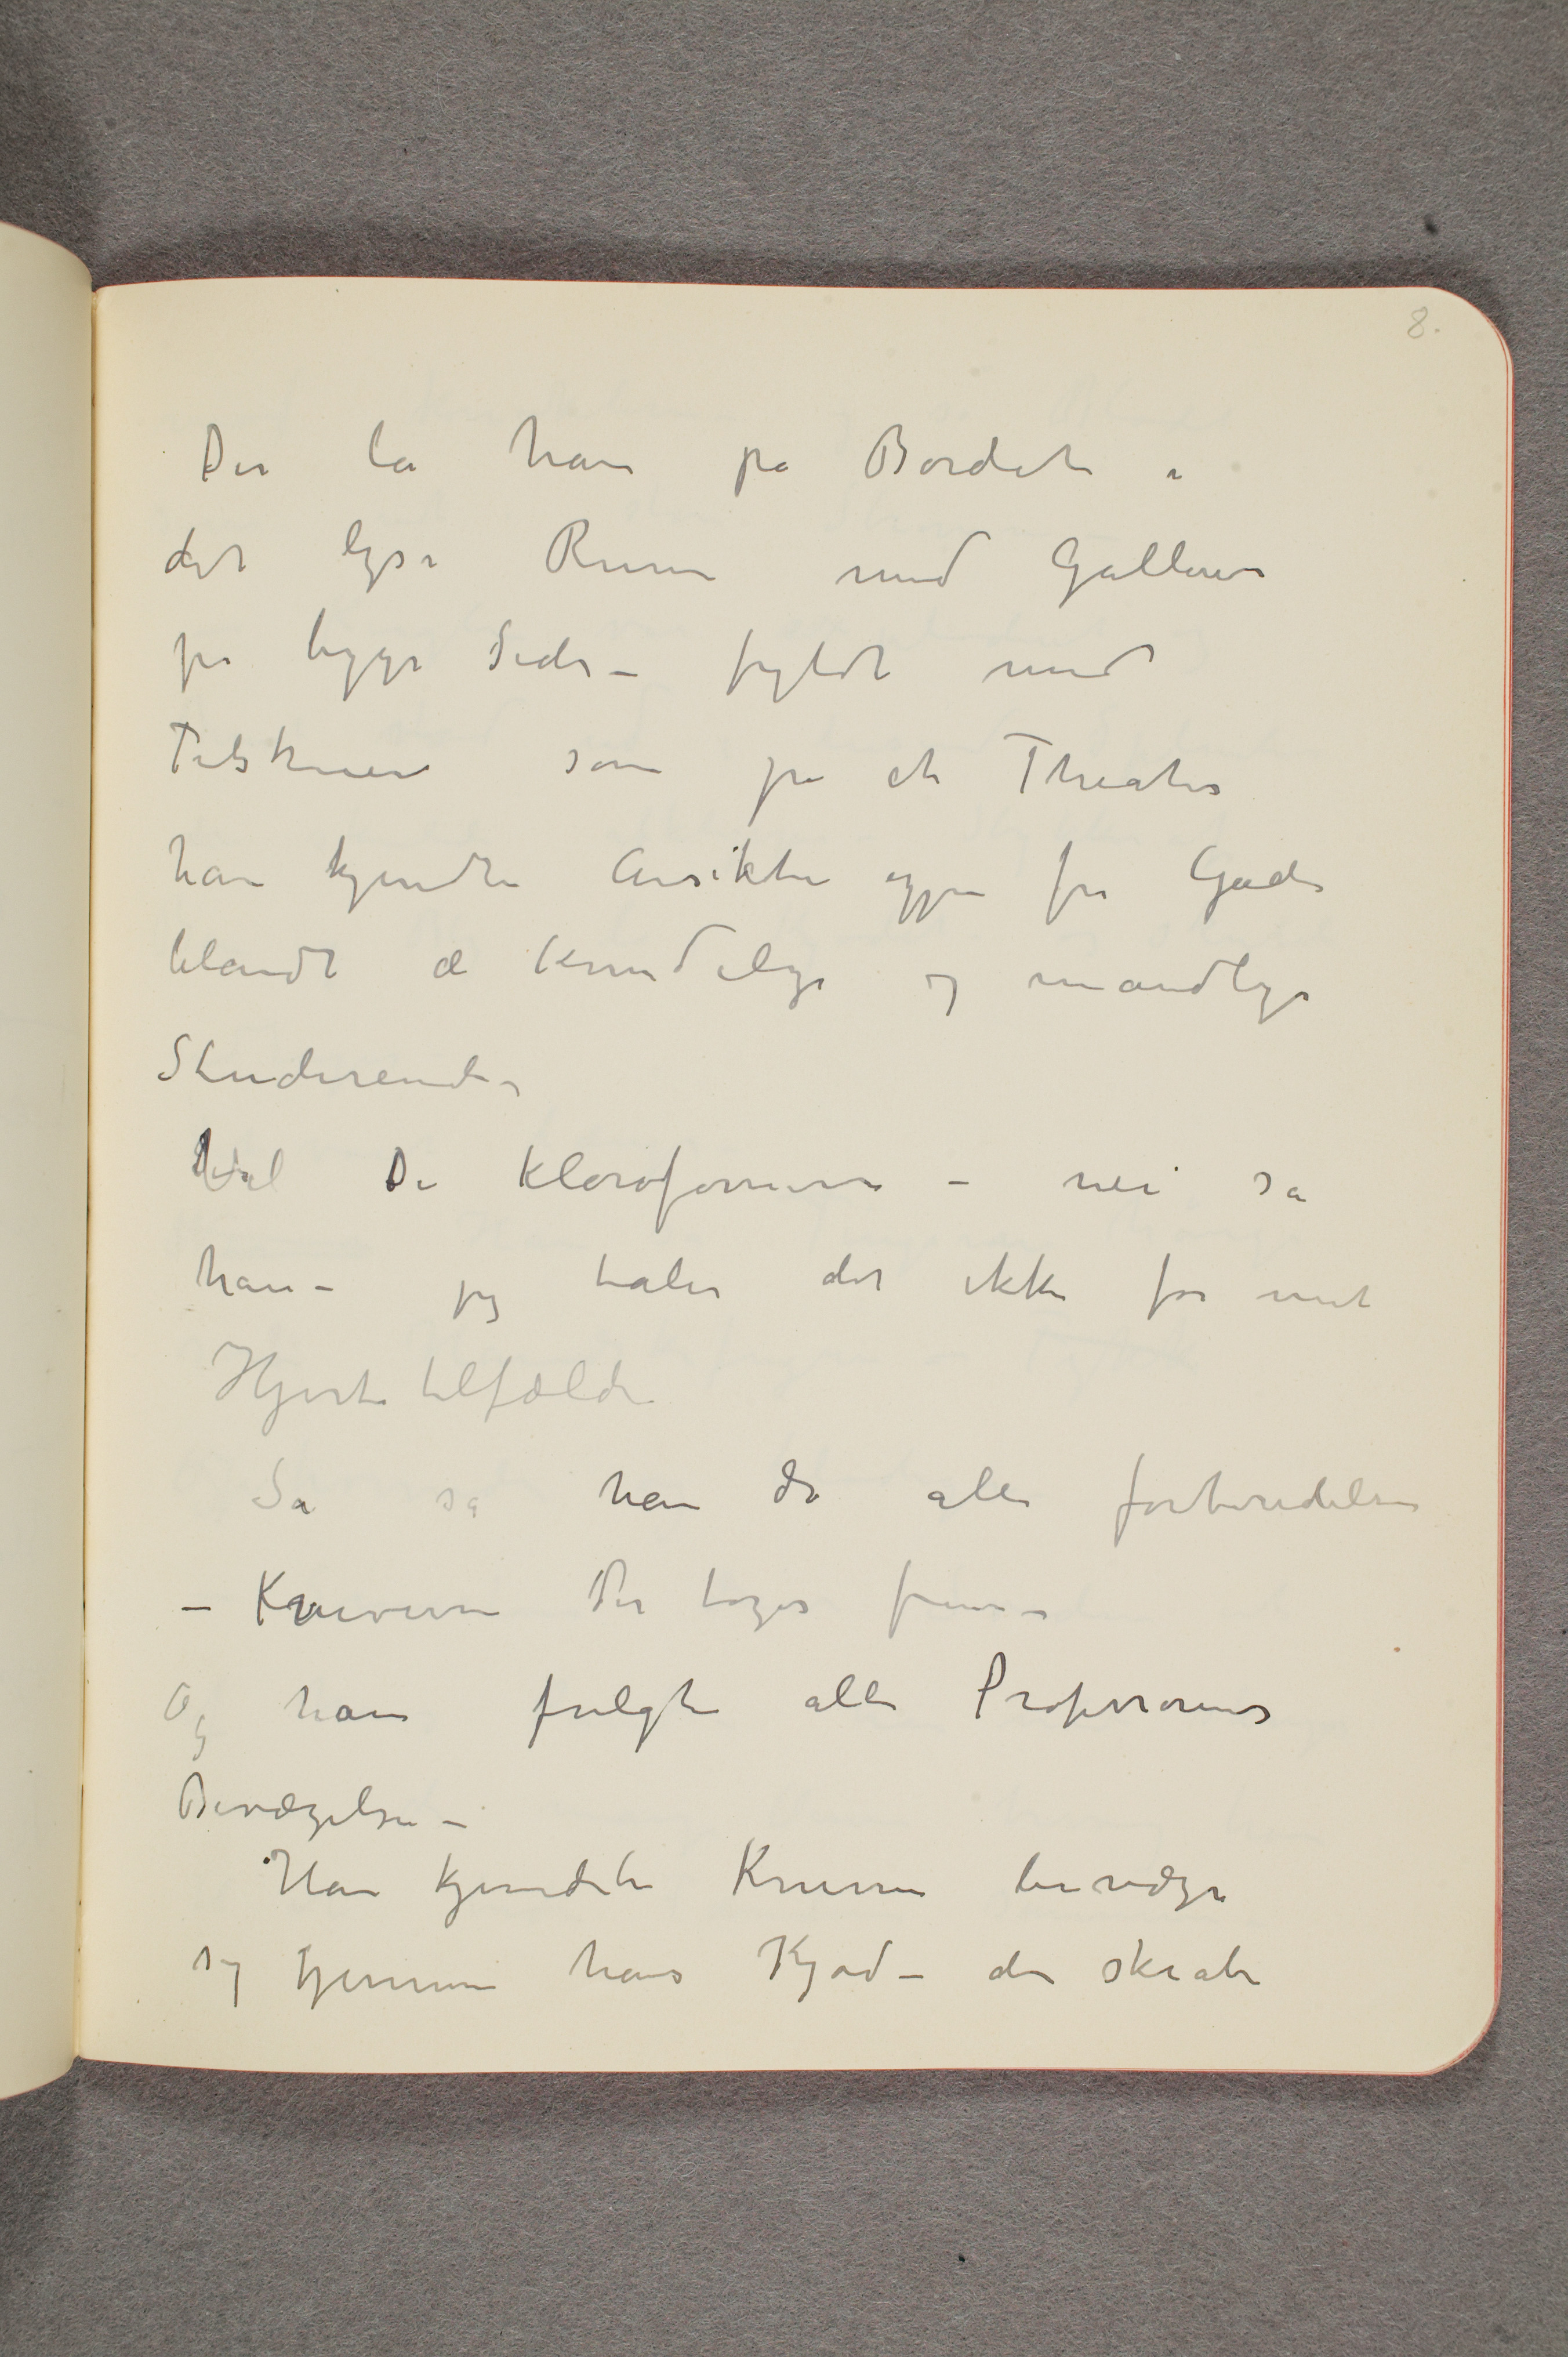 8.
Der lå han på Bordet i
det lyse Rum med Gallerier
på begge Sider – fyldt med
Tilskuere som på et Theater
han kjendte Ansikter igjen fra Gaden
blandt de kvindelige og mandlige
Studerende –
Vil De kloroformeres – nei sa
han – jeg tåler det ikke for mit
Hjertetilfælde
Så så han da alle forberedelser
– Knivene Der toges frem –
Og han fulgte alle Professorens
Bevægelser –
Han kjendte Kniven bevæge
sig gjennem hans Kjød – den skrabte